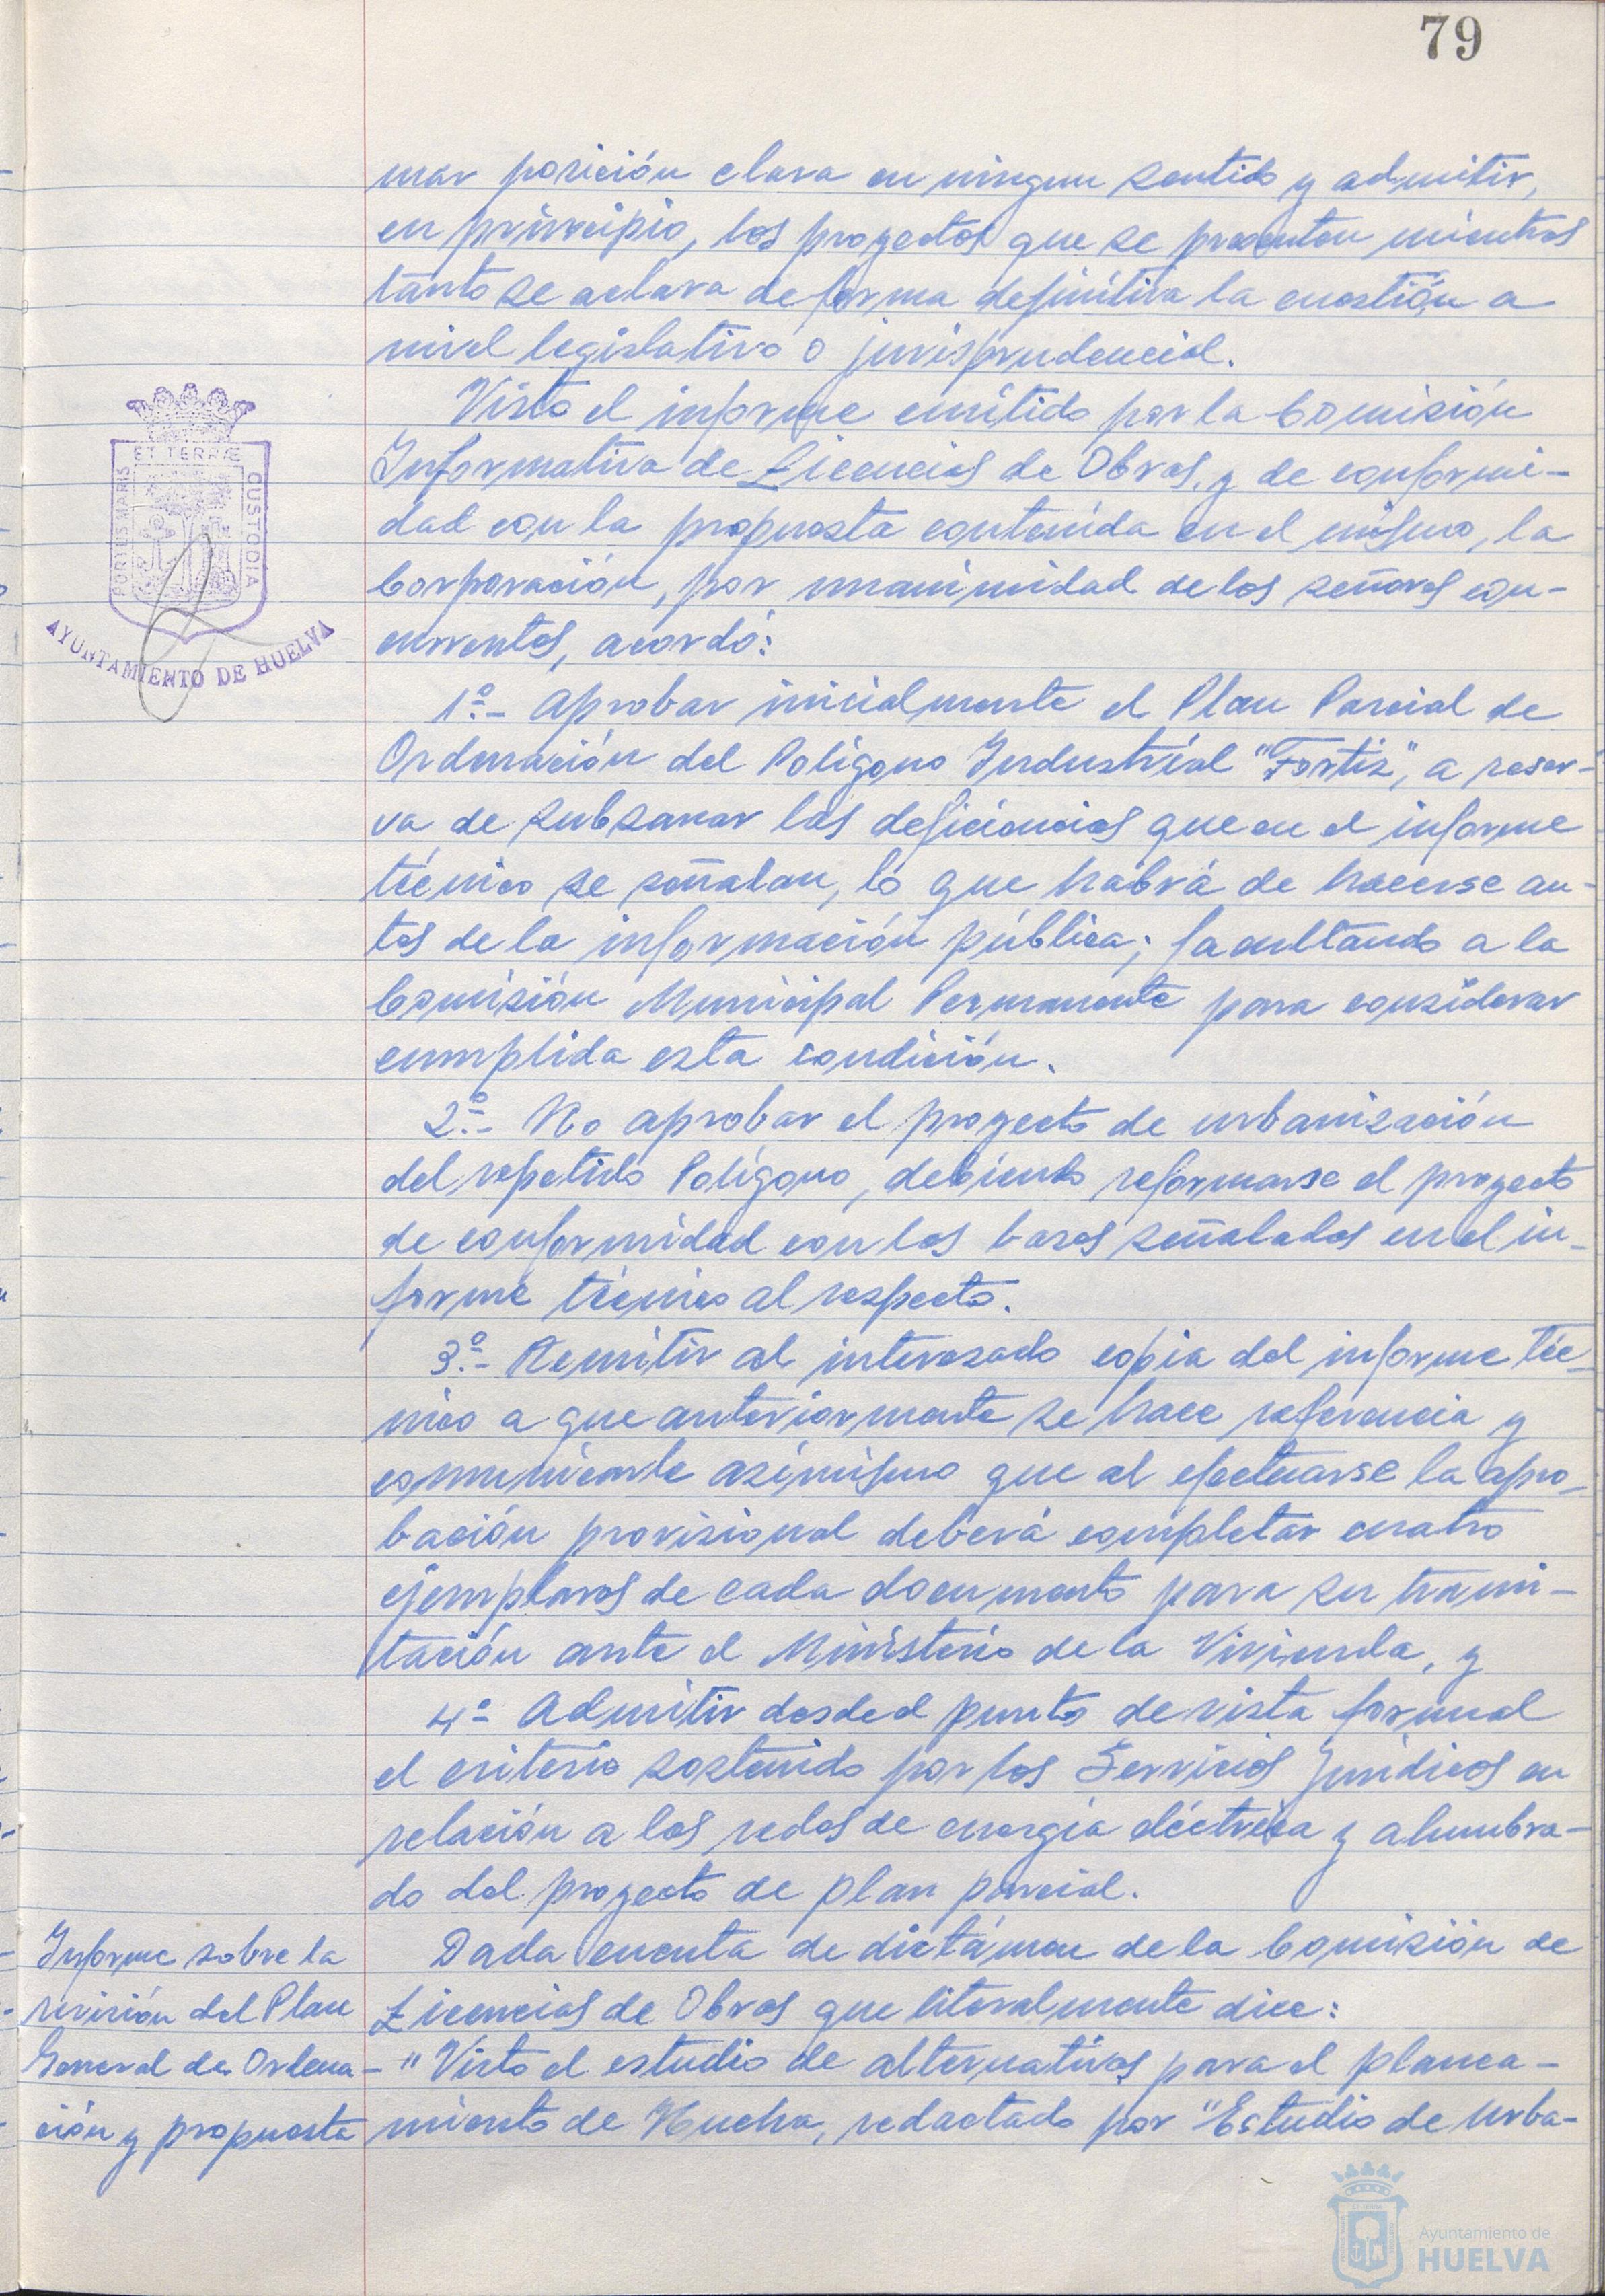 79
mar posición clara en ningun sentido y admitir,
en principio, los proyectos que se presenten mientras
tanto se aclara de forma definitiva la cuestión a
nivel legislativo o jurisprudencial.
Visto el informe emitido por la Comisión
Informativa de Licencias de Obras, y de conformi-
dad con la propuesta contenida en el mismo, la
Corporación, por unanimidad de los señores con-
currentes, acordó:
PORTUS MARIS ET TERRÆ CUSTODIA
AYUNTAMIENTO DE HUELVA
1º.- Aprobar inicialmente el Plan Parcial de
Ordenación del Polígono Industrial "Fortiz", a reser-
va de subsanar las deficiencias que en el informe
técnico se señalan, lo que habrá de hacerse an-
tes de la información pública; facultando a la
Comisión Municipal Permanente para considerar
cumplida esta condición.
2º.- No aprobar el proyecto de urbanización
del repetido Polígono, debiendo reformarse el proyecto
de conformidad con las bases señaladas en el in-
forme técnico al respecto.
3º.- Remitir al interesado copia del informe téc-
nico a que anteriormente se hace referencia y
comunicarle asimismo que al efectuarse la apro-
bación provisional deberá completar cuatro
ejemplares de cada documento para su trami-
tación ante el Ministerio de la Vivienda, y
4º- Admitir desde el punto de vista formal
el criterio sostenido por los Servicios Jurídicos en
relación a las redes de energía eléctrica y alumbra-
do del proyecto de plan parcial.
Informe sobre la
revisión del Plan
General de Ordena-
ción y propuesta
Dada cuenta de dictámen de la Comisión de
Licencias de Obras que literalmente dice:
"Visto el estudio de alternativas para el planea-
miento de Huelva, redactado por "Estudio de Urba-
Ayuntamiento de
HUELVA